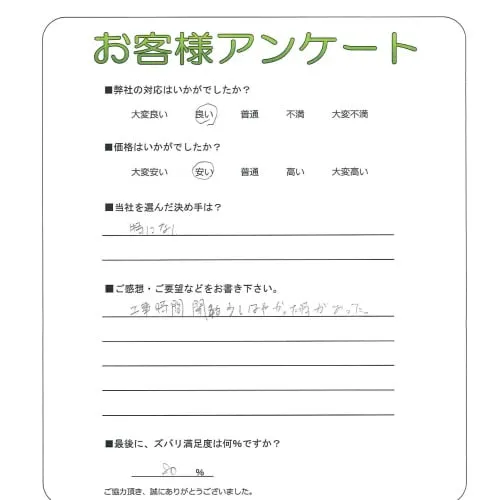 お客様アンケート
■弊社の対応はいかがでしたか?
大変良い 良い 普通 不満 大変不満
■価格はいかがでしたか?
大変安い 安い 普通 高い 大変高い
■当社を選んだ決め手は?
特になし
■ご感想・ご要望などをお書き下さい。
工事時間 開始 はやかった時があった。
■最後に、ズバリ満足度は何%ですか?
80 %
ご協力頂き、誠にありがとうございました。